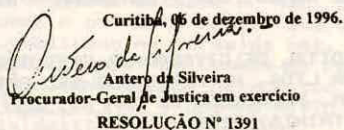 Curitiba, 06 de dezembro de 1996.
Antero da Silveira
Procurador-Geral de Justiça em exercício
RESOLUÇÃO Nº 1391